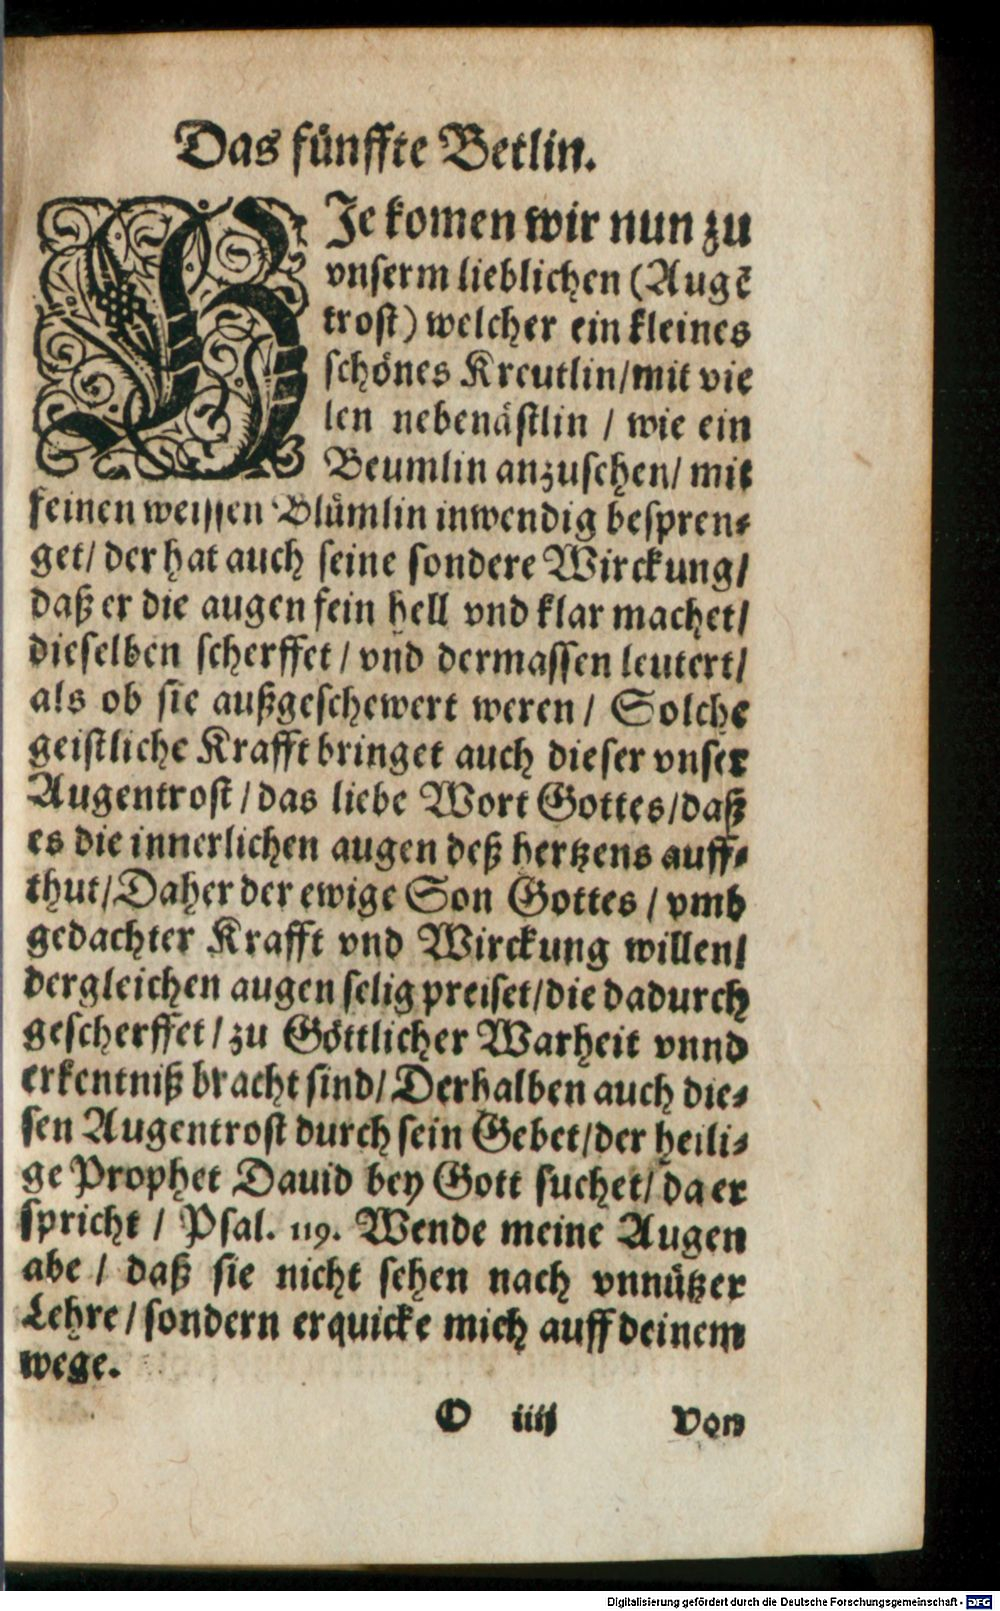 Das fünffte Betlin.
HJe komen wir nun zu
vnserm lieblichen (Augẽ
trost) welcher ein kleines
schönes Kreutlin/mit vie
len nebenästlin / wie ein
Beumlin anzusehen/ mit
feinen weissen Blümlin inwendig bespren⸗
get/ der hat auch seine sondere Wirckung/
daß er die augen fein hell vnd klar machet/
dieselben scherffet / vnd dermassen leutert/
als ob sie außgeschewert weren / Solche
geistliche Krafft bringet auch dieser vnser
Augentrost / das liebe Wort Gottes/daß
es die innerlichen augen deß hertzens auff⸗
thut/Daher der ewige Son Gottes / vmb
gedachter Krafft vnd Wirckung willen/
dergleichen augen selig preiset/die dadurch
gescherffet / zu Göttlicher Warheit vnnd
erkentniß bracht sind/ Derhalben auch die⸗
sen Augentrost durch sein Gebet/der heili⸗
ge Prophet Dauid bey Gott suchet/ da er
spricht / Psal. 119. Wende meine Augen
abe / daß sie nicht sehen nach vnnützer
Lehre / sondern erquicke mich auff deinem
wege.
O iiij Von
Digitalisierung gefördert durch die Deutsche Forschungsgemeinschaft - DFG